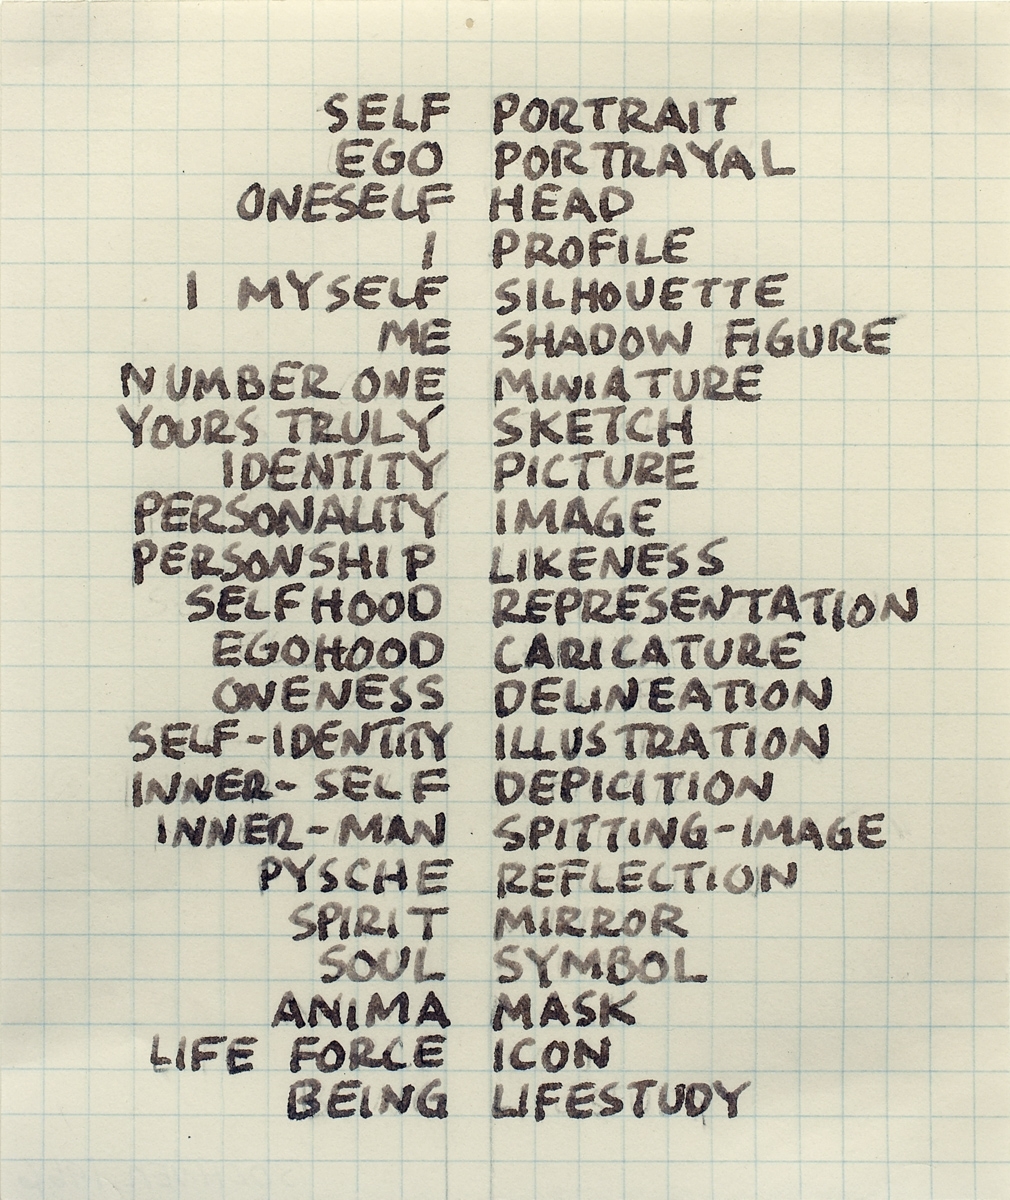 SELF PORTRAIT
EGO PORTRAYAL
ONESELF HEAD
I PROFILE
I MYSELF SILHOUETTE
ME SHADOW FIGURE
NUMBER ONE MINIATURE
YOURS TRULY SKETCH
IDENTITY PICTURE
PERSONALITY IMAGE
PERSONSHIP LIKENESS
SELFHOOD REPRESENTATION
EGOHOOD CARICATURE
ONENESS DELINEATION
SELF-IDENTITY ILLUSTRATION
INNER-SELF DEPICITION
INNER-MAN SPITTING-IMAGE
PYSCHE REFLECTION
SPIRIT MIRROR
SOUL SYMBOL
ANIMA MASK
LIFE FORCE ICON
BEING LIFESTUDY